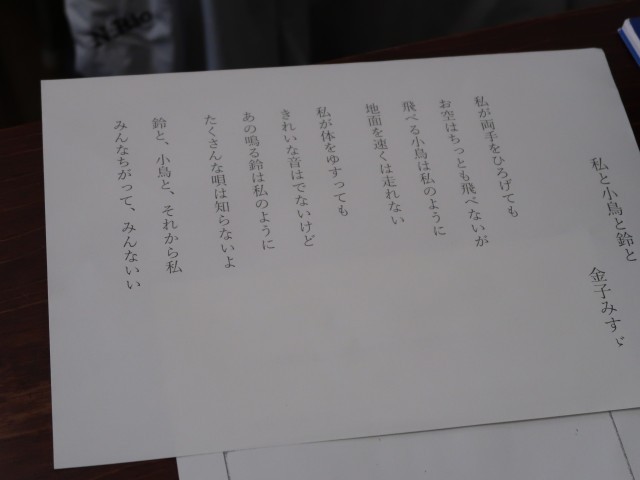 私と小鳥と鈴と
金子みすゞ
私が両手をひろげても
お空はちっとも飛べないが
飛べる小鳥は私のように
地面を速くは走れない
私が体をゆすっても
きれいな音はでないけど
あの鳴る鈴は私のように
たくさんな唄は知らないよ
鈴と、小鳥と、それから私
みんなちがって、みんないい